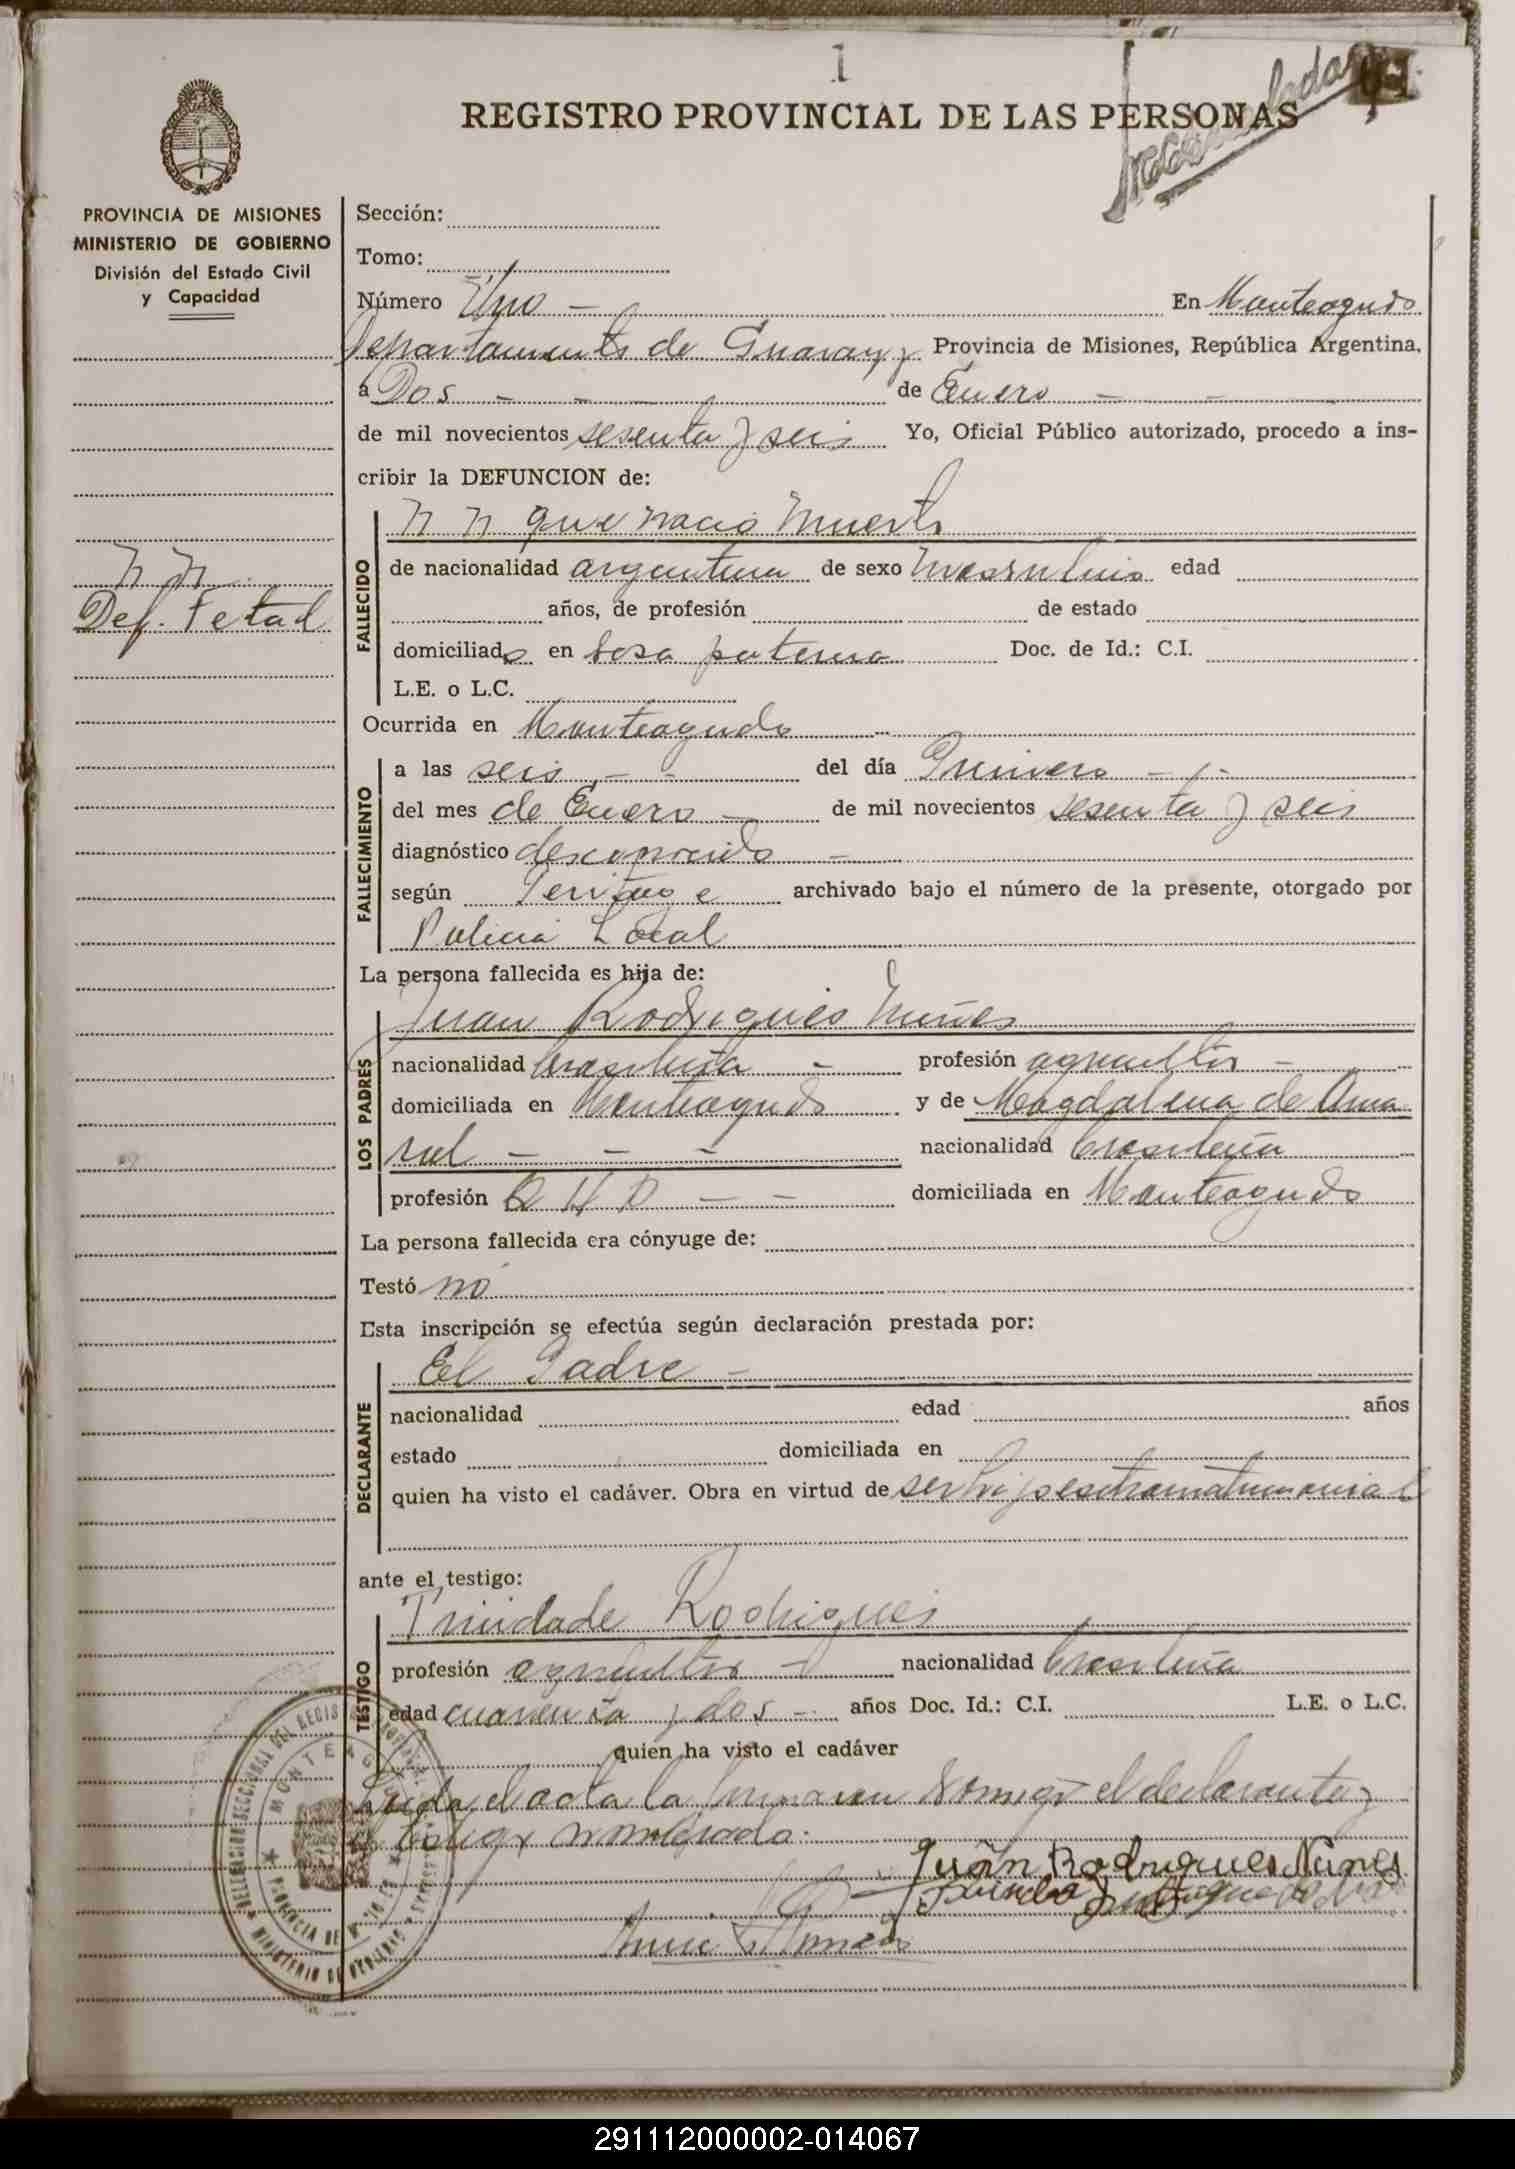 1
REGISTRO PROVINCIAL DE LAS PERSONAS
PROVINCIA DE MISIONES
MINISTERIO DE GOBIERNO
División del Estado Civil
y Capacidad
N N
Def. Fetal
Sección:
Tomo:
Número Uno — En Monteagudo
Departamento de Guarany Provincia de Misiones, República Argentina,
a Dos - - - de Enero - - -
de mil novecientos sesenta y seis Yo, Oficial Público autorizado, procedo a ins-
cribir la DEFUNCION de:
FALLECIDO
N N que nacio muerto
de nacionalidad argentina de sexo masculino edad
años, de profesión de estado
domiciliado en casa paterna Doc. de Id.: C.I.
L.E. o L.C.
Ocurrida en Monteagudo
FALLECIMIENTO
a las seis - - del día Primero - -
del mes de Enero - de mil novecientos sesenta y seis
diagnóstico desconocido -
según Peritage archivado bajo el número de la presente, otorgado por
Policia Local
La persona fallecida es hija de:
LOS PADRES
Juan Rodrigues Nuñes
nacionalidad brasileña - profesión agricultor -
domiciliada en Monteagudo y de Magdalena de Ama
ral - - - nacionalidad brasileña
profesión Q H D - - domiciliada en Monteagudo
La persona fallecida era cónyuge de:
Testó no
Esta inscripción se efectúa según declaración prestada por:
DECLARANTE
El Padre -
nacionalidad edad años
estado domiciliada en
quien ha visto el cadáver. Obra en virtud de ser hijo extramatrimonial
ante el testigo:
TESTIGO
Trindade Rodrigues
profesión agricultor - nacionalidad brasileña
edad cuarenta y dos - años Doc. Id.: C.I. L.E. o L.C.
quien ha visto el cadáver
Leida el acta la firman conmigo el declarante y
el testigo nombrado.
Juan Rodrigues Nunes
291112000002-014067